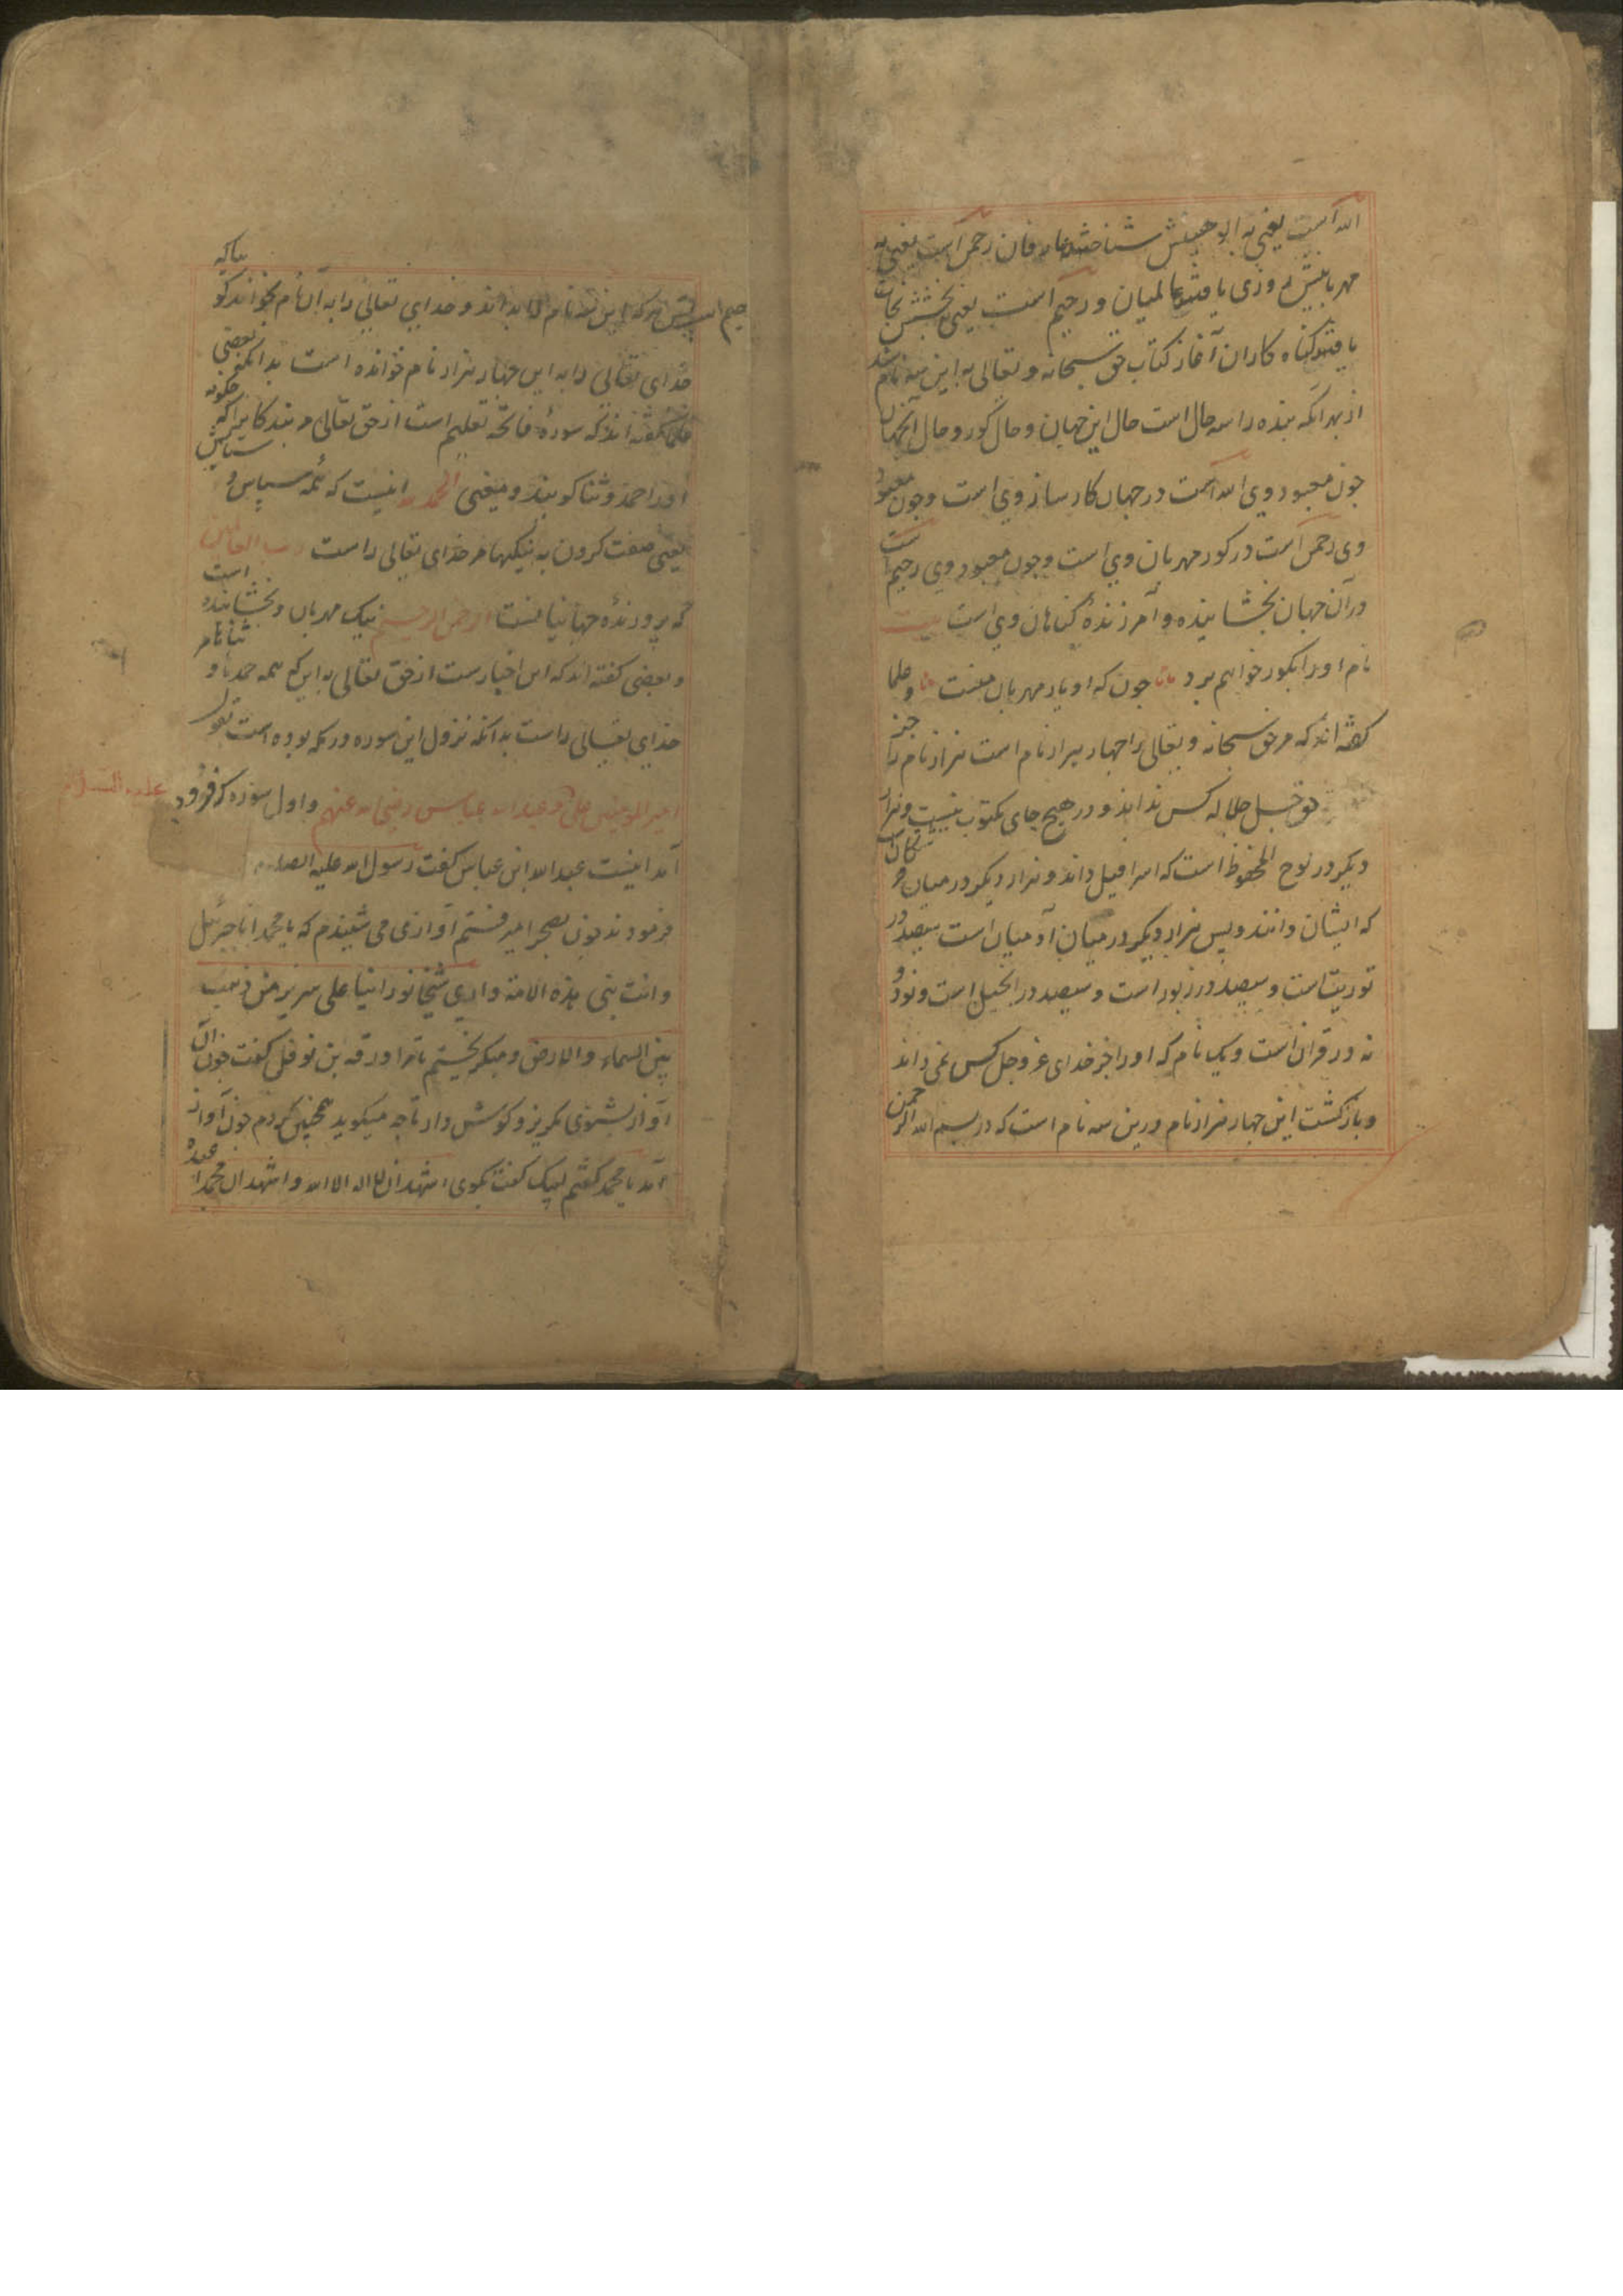 الله است یعنی به الوهیتش شناختند عارفان رحمن است یعنی به
مهربانیش روزی یافتند عالمیان و رحیم است یعنی به بخشش نجات
یافتند گناه کاران آغاز کتاب حق سبحانه و تعالی به این سه نام شد
از بهر آنکه بنده را سه حال است حال این جهان و حال گور و حال آنجهان
چون معبود وی الله است در جهان کارساز وی است و چون معبود
وی رحمن است در گور مهربان وی است و چون معبود وی رحیم است
در آن جهان بخشاینده و آمرزندهٔ گناهان وی است بیت
نام او را بگور خواهم برد چون که او یار مهربان منست و علما
گفته اند که مر حق سبحانه و تعالی را چهار هزار نام است هزار نام را جز
حق جل جلاله کس نداند و در هیچ جای مکتوب نیست و هزار
دیگر در لوح المحفوظ است که اسرافیل داند و هزار دیگر در میان فرشتگان
که ایشان دانند و بس هزار دیگر در میان آدمیان است سیصد در
توریت است و سیصد در زبور است و سیصد در انجیل است و نود و
نه در قران است و یک نام که او را جز خدای عز و جل کس نمی داند
و بازگشت این چهار هزار نام درین سه نام است که در بسم الله الرحمن
رحیم است پس هر که این سه نام را بداند و خدای تعالی را به آن نام بخواند گویا که
خدای تعالی را به این چهار هزار نام خوانده است بدانکه بعضی
علما گفته اند که سورهٔ فاتحه تعلیم است از حق تعالی مر بندگانرا که چگونه
او را حمد و ثنا گویند و معنی الحمد لله اینست که همه سپاس و ستایش
یعنی صفت کردن به نیکیها مر خدای تعالی راست رب العالمین
که پرورندهٔ جهانیانست الرحمن الرحیم نیک مهربان و بخشاینده است
و بعضی گفته اند که این اخبارست از حق تعالی به این که همه حمدها و ثناها مر
خدای تعالی راست بدانکه نزول این سوره در مکه بوده است بقول
امیر المومنین علی و عبد الله عباس رضی الله عنهم و اول سوره که فرود
آمد اینست عبد الله ابن عباس گفت رسول الله علیه الصلوة
علیه السلام
فرمودند چون بصحرا میرفتم آوازی می شنیدم که یا محمد انا جبرئیل
و انت نبی هذه الامة و ارى شیخا نورانیا علی سریر من ذهب
بین السماء و الارض و میگریختم تا مرا ورقه بن نوفل گفت چون آن
آواز بشنوی مگریز و گوش دار تا چه میگوید همچنین کردم چون آواز
آمد یا محمد گفتم لبیک گفت بگوی اشهد ان لا اله الا الله و اشهد ان محمدا عبده